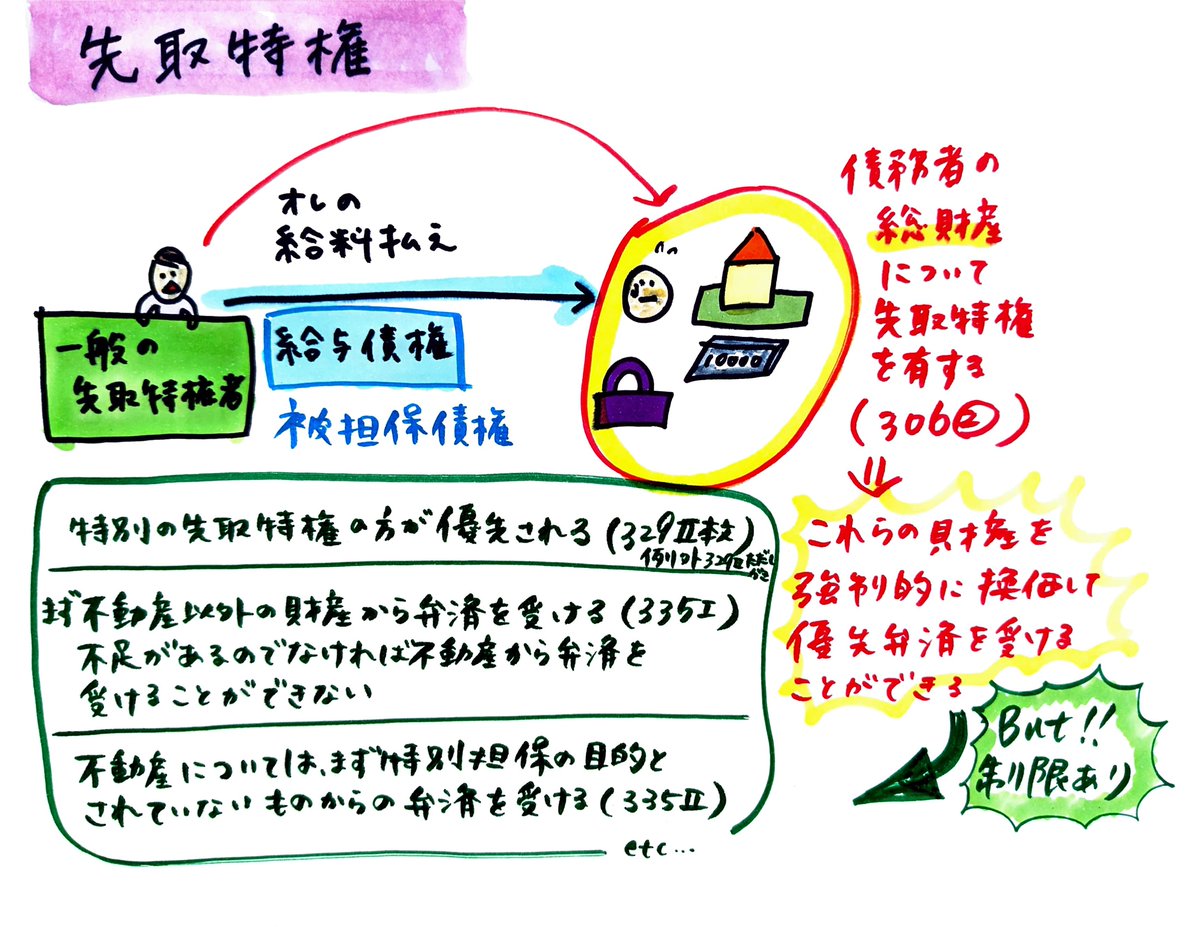 先取特権
オレの
給料払え
一般の
先取特権者
給与債権
被担保債権
10000
債務者の
総財産
について
先取特権
を有する
(306②)
これらの財産を
強制的に換価して
優先弁済を受ける
ことができる
But!!
制限あり
特別の先取特権の方が優先される(329Ⅱ本文)
例外 329Ⅱただし
がき
まず不動産以外の財産から弁済を受ける(335Ⅰ)
不足があるのでなければ不動産から弁済を
受けることができない
不動産については、まず特別担保の目的と
されていないものからの弁済を受ける(335Ⅱ)
etc...